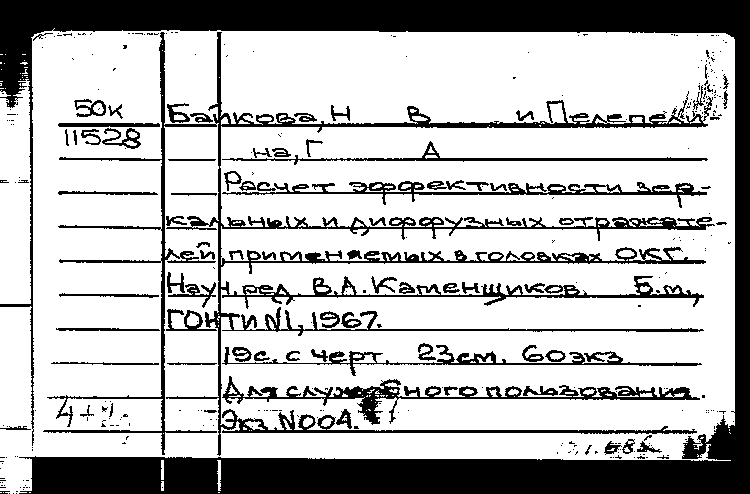 50к Байкова, Н В и Пелепели-
11528 на, Г А
Расчет эффективности зер-
кальных и диффузных отражате-
лей, применяемых в головках ОКГ.
Науч. ред. В.А. Каменщиков. Б.м.,
ГОНТИ №1, 1967.
19с. с черт. 23см. 60экз
Для служебного пользования.
4+ Экз. №004.